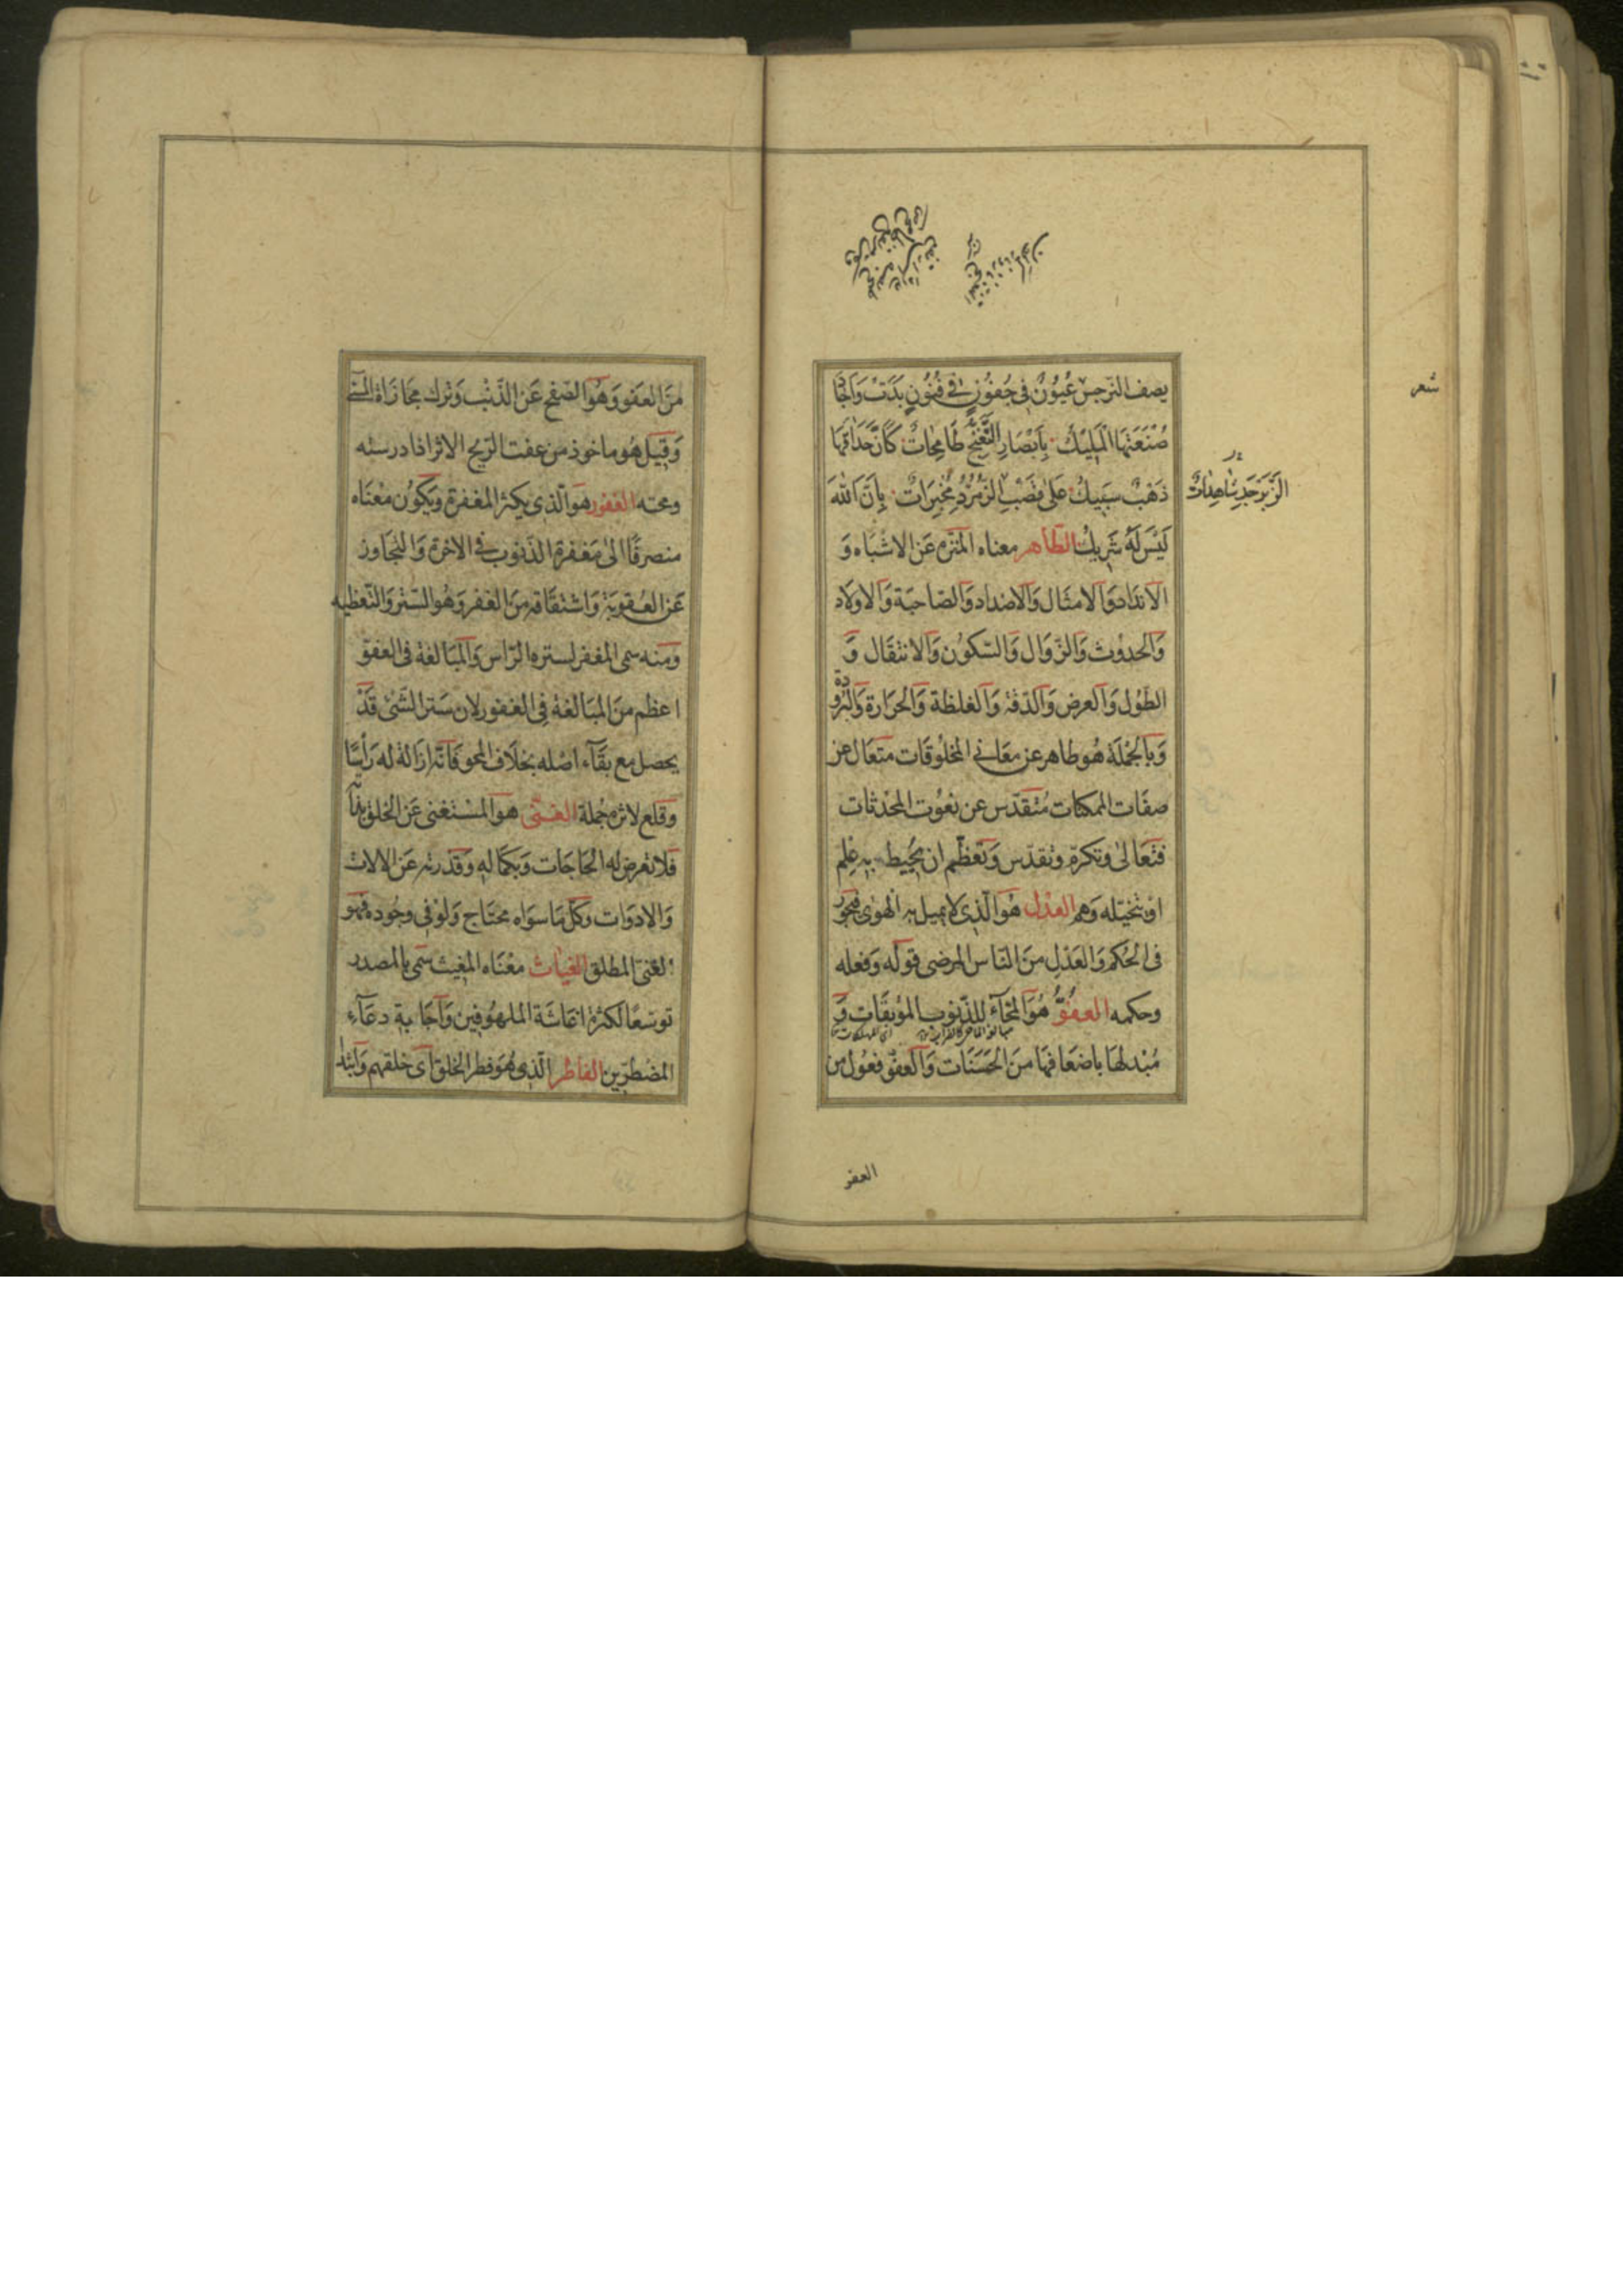 يصف النرجس عُيُونٌ فِي جُفُونٍ فِي فُنُونٍ بَدَتْ وَاَجَادَ
صُنْعَتَهَا الْمَلِيكُ بِاَبْصَارِ التَّغَنُّجِ طَامِحَاتٌ كَاَنَّ حِدَاقَهَا
ذَهَبٌ سَبِيكُ عَلٰى قُضُبِ الزُّمُرُّدِ مُخْبِرَاتٌ بِاَنَّ اللهَ
الزَّبَرْجَدِ شَاهِدَاتٌ
شعر
لَيْسَ لَهُ شَرِيكُ الطاهر معناه المتنزه عَن الاشبَاه وَ
الانداد وَالامثَال وَالاضداد وَالصّاحبَة وَالاولاد
وَالحدوث وَالزّوَال وَالسّكوُن وَالانتقَال وَ
الطّول وَالعرض وَالدّقة وَالغلظة وَالحَرَارة وَالبُرودة
وَبالجُملَة هُو طاهر عن معَاني المخلُوقَات متعَال عن
صفَات الممكنات مُتقدّس عن نعُوت المحدثات
فتعَالىٰ وتكرّم وتقدّس وَتعَظّم ان يحُيط به عِلم
او يتخيّله وَهم العدل هُوَ الّذِى لا يميل به الهوٰى فيجوُر
فى الحُكم وَالعَدْل مِنَ النّاس المرضى قوله وَفعله
وحكمه العفُوُّ هُوَ المحّآء للذّنوب الموُبقَات وَ
مُبْدلهَا باضعَافهَا منَ الحَسَنَات وَالعفوّ فعُول من
العفو
منَ العَفو وَهُوَ الصّفح عَن الذّنْب وَتَرك مجَازَاة المسئ
وَقِيَل هُو ماخوذ من عفت الرّيح الاثر اذا درسته
ومحته الغفور هوَ الّذى يكثر المغفرة وَيَكوُن معْنَاه
منصرفًا الىٰ مَغفرة الذّنوب فى الاخرة وَالتجَاوز
عَن العُقوبَة وَاشتقَاقه مِنَ الغفر وَهُو السّتر وَالتّغطيه
وَمنه سمى المغفر لستره الرّاس وَالمبَالغة فى العفوّ
اعظم منَ المبَالغة فِى الغفور لان سَتر الشّئ قَدْ
يحصل مع بقَآء اصْله بخلَاف المحو فَانّه ازَالة له رَأسًا
وَقلع لاثره جُملة الغنى هوَ المسْتغنى عَن الخلق بذاته
فَلا تعرض له الحَاجَات وَبكمَاله وَقدرته عَن الالات
وَالادوَات وكلّ مَا سوَاه محتَاج وَلوْ فى وجُوده فهو
الغنى المطلق الغياث معْنَاه المغيث سُمّى بالمصدر
توسّعًا لكثرة اغاثَة الملهوُفين وَاجَابة دعَآءِ
المضْطرّين الفاطر الّذى هُوَ فطر الخلق اى خلقهم وَابْتدا